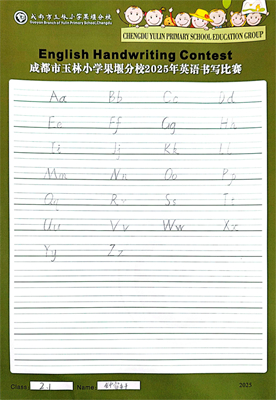 成都市玉林小学果堰分校
Guoyan Branch of Yulin Primary School, Chengdu
CHENGDU YULIN PRIMARY SCHOOL EDUCATION GROUP
English Handwriting Contest
成都市玉林小学果堰分校2025年英语书写比赛
Aa Bb Cc Dd
Ee Ff Gg Hh
Ii Jj Kk Ll
Mm Nn Oo Pp
Qq Rr Ss Tt
Uu Vv Ww Xx
Yy Zz
Class 2.1 Name
2025